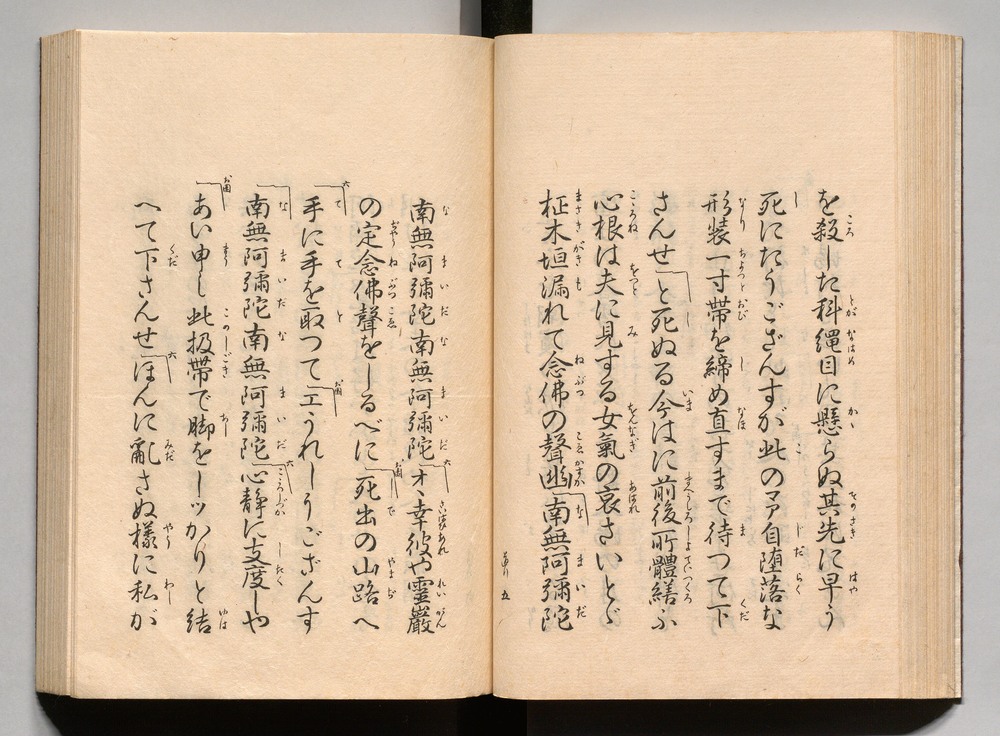 を殺した科縄目に懸らぬ其先に早う
死にたうござんすが此のマア自堕落な
形装一寸帯を締め直すまで待つて下
さんせと死ぬる今はに前後所體繕ふ
心根は夫に見する女氣の哀さいとゞ
柾木垣漏れて念佛の聲幽南無阿彌陀
南無阿彌陀南無阿彌陀オヽ幸彼や靈巖
の定念佛聲をしるべに死出の山路へ
手に手を取つてエうれしうござんす
南無阿彌陀南無阿彌陀心静に支度しや
あい申し此扱帯で脚をしツかりと結
へて下さんせほんに亂さぬ樣に私が